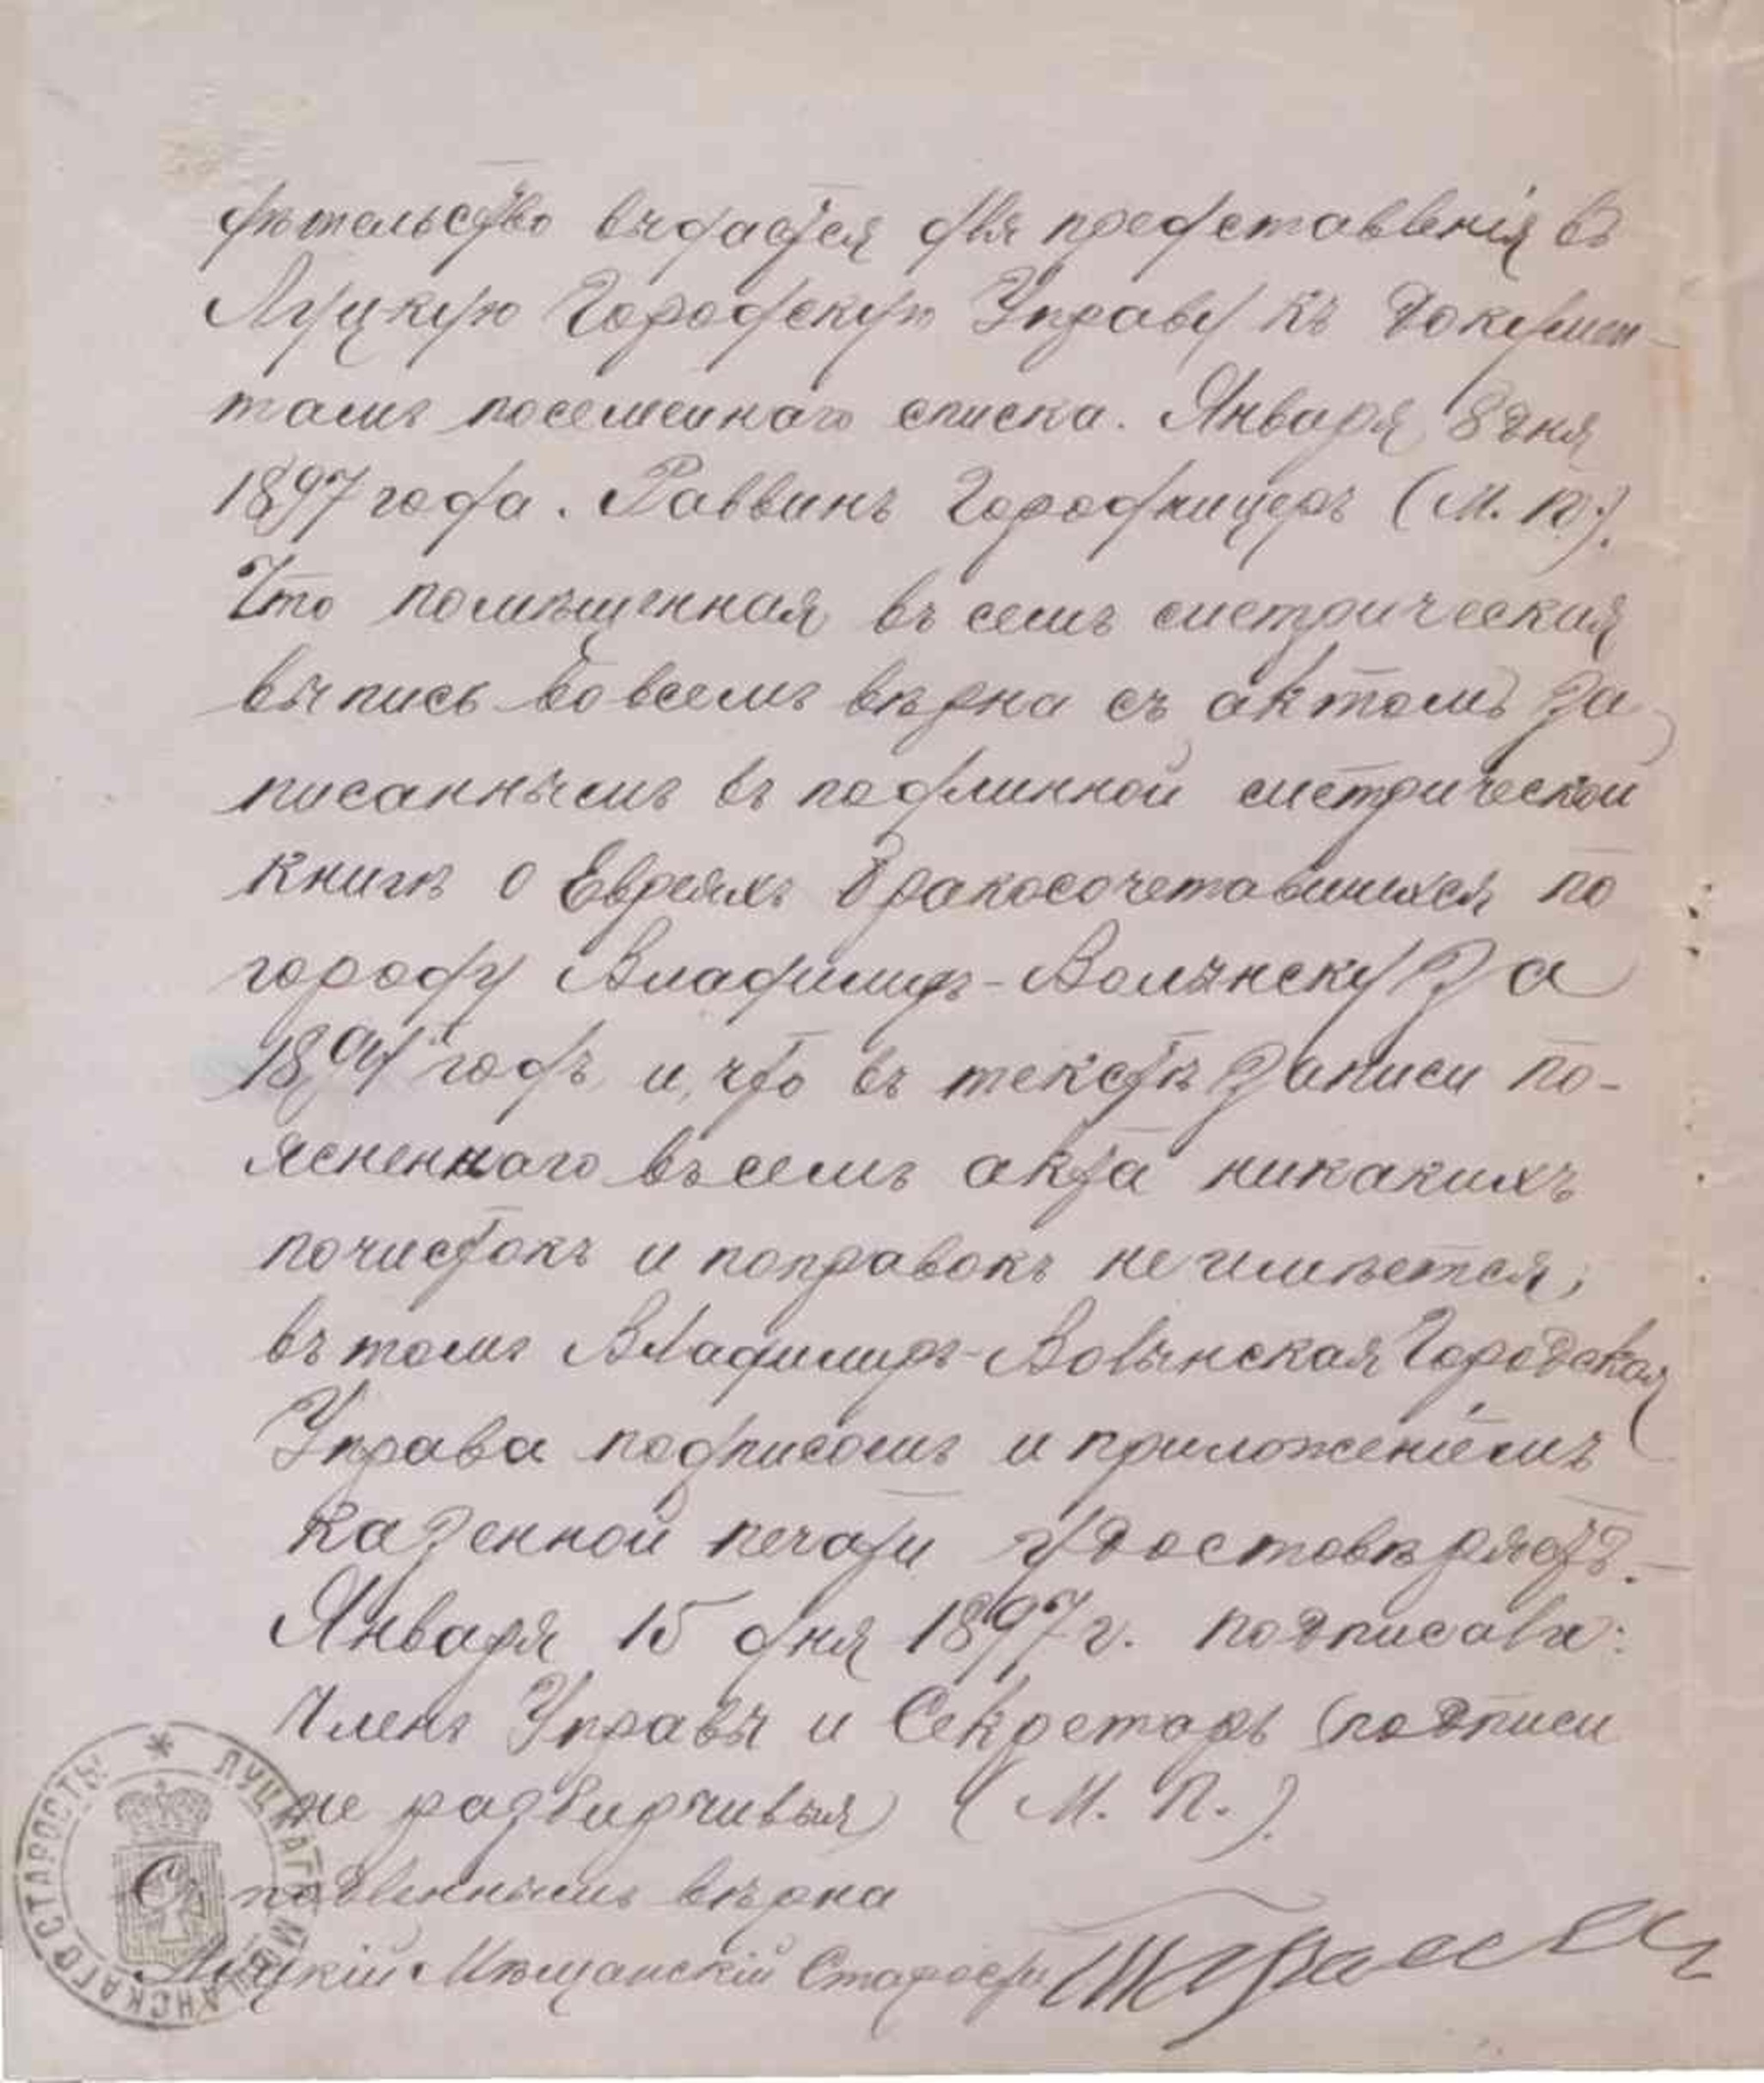 дѣтельство выдается для представленія въ
Луцкую Городскую Управу къ докумен-
тамъ посемейнаго списка. Января 8 дня
1897 года. Раввинъ Городницеръ (М. П.).
Что помѣщенная въ семъ метрическая
выпись во всемъ вѣрна съ актомъ за
писаннымъ въ подлинной метрической
книгѣ о Евреяхъ бракосочетавшихся по
городу Владимиръ-Волынску за
18 годъ и, что въ текстѣ записи по-
ясненнаго въ семъ акта никакихъ
почистокъ и поправокъ не имѣется,
въ томъ Владимиръ-Волынская Городская
Управа подписомъ и приложеніемъ
казенной печати удостовѣряетъ.
Января 15 дня 1897 г. подписали:
Членъ Управы и Секретарь (подписи
не разборчивыя) (М. П.).
С подленнымъ вѣрна
Луцкій Мѣщанскій Староста
ЛУЦКАГО МѢЩАНСКАГО СТАРОСТЫ *